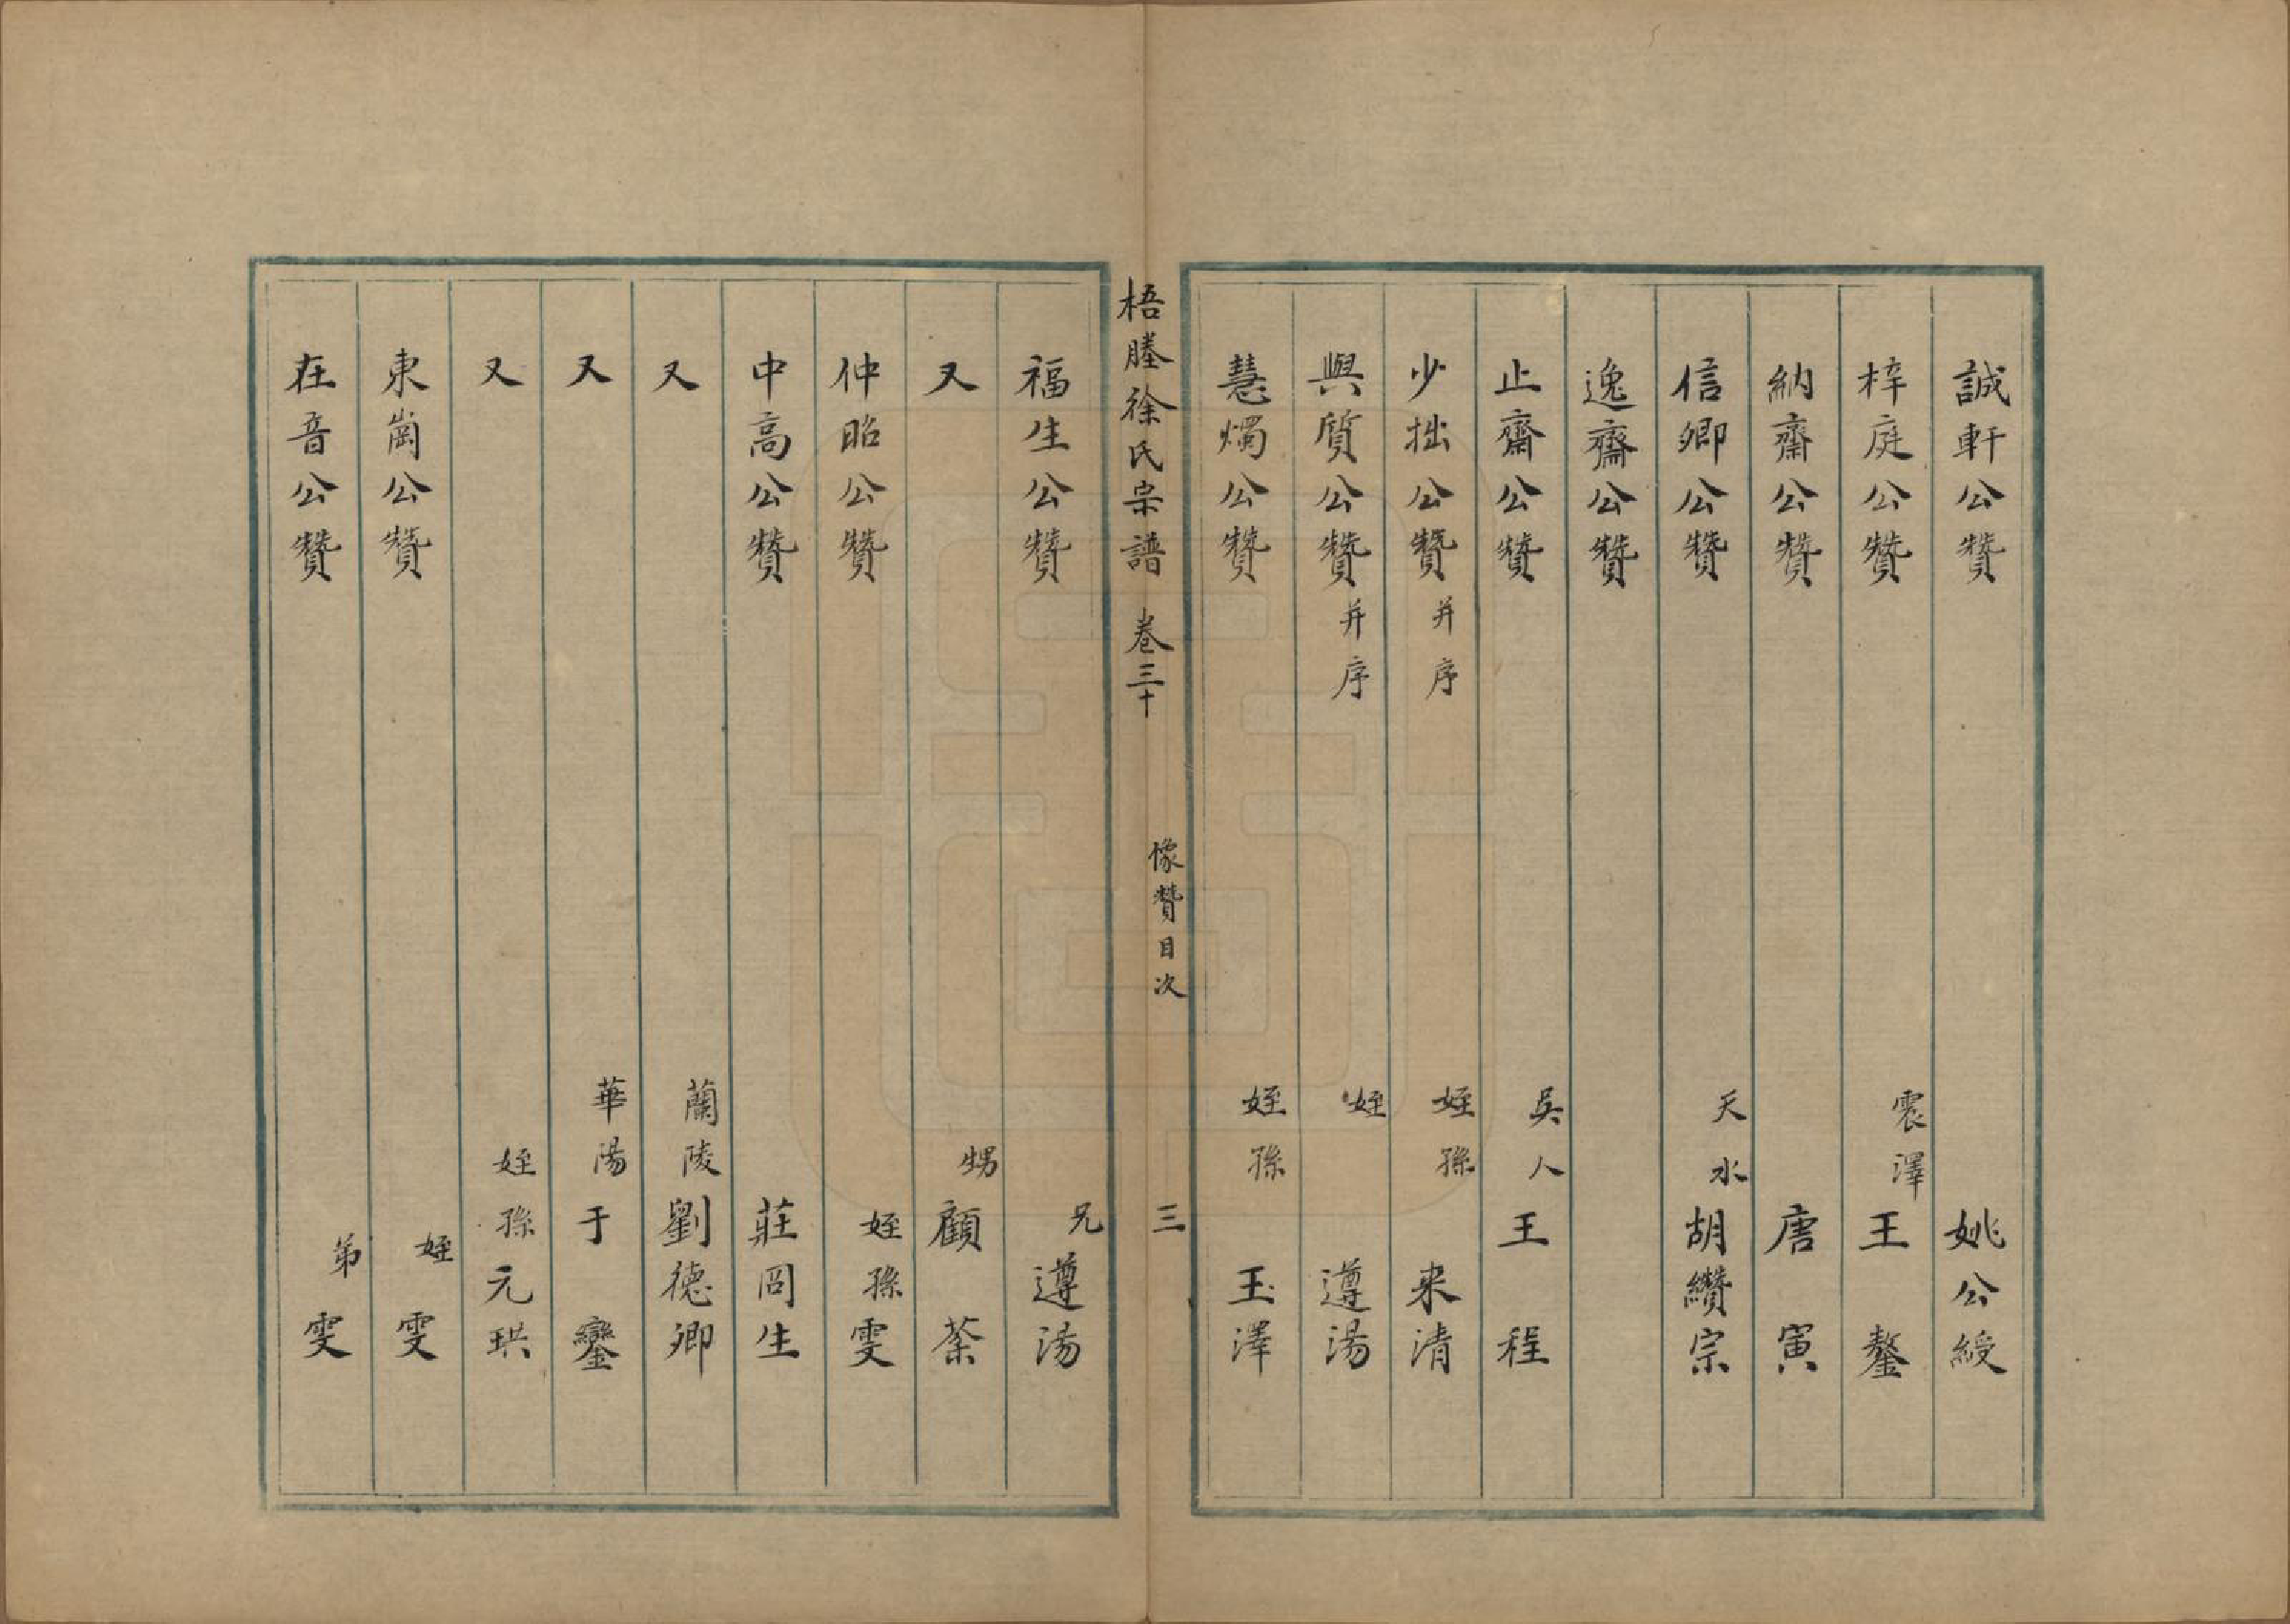 誠軒公贊 姚公綬
梓庭公贊 震澤王鏊
納齋公贊 唐寅
信卿公贊 天水胡纘宗
逸齋公贊
止齋公贊 吳人王程
少拙公贊并序 姪孫來清
與質公贊并序 姪遵湯
慧燭公贊 姪孫玉澤
梧塍徐氏宗譜 卷三十 像贊目次 三
福生公贊 兄遵湯
又 甥顧荼
仲昭公贊 姪孫雯
中高公贊 莊同生
又 蘭陵劉德卿
又 華陽于鑾
又 姪孫元珙
東崗公贊 姪雯
在音公贊 弟雯